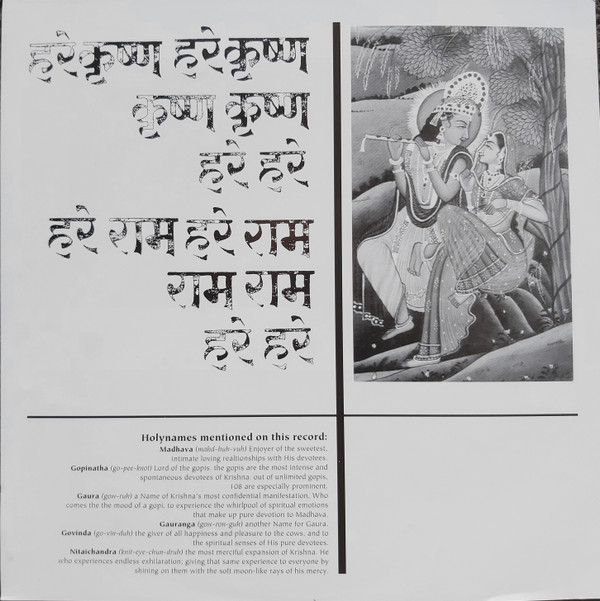 हरेकृष्ण हरेकृष्ण
कृष्ण कृष्ण
हरे हरे
हरे राम हरे राम
राम राम
हरे हरे
Holynames mentioned on this record:
Madhava (mahd-huh-vuh) Enjoyer of the sweetest,
intimate loving realtionships with His devotees.
Gopinatha (go-pee-knot) Lord of the gopis. the gopis are the most intense and
spontaneous devotees of Krishna. out of unlimited gopis,
108 are especially prominent.
Gaura (gow-ruh) a Name of Krishna's most confidential manifestation, Who
comes the the mood of a gopi, to experience the whirlpool of spiritual emotions
that make up pure devotion to Madhava.
Gauranga (gow-ron-guh) another Name for Gaura.
Govinda (go-vin-duh) the giver of all happiness and pleasure to the cows, and to
the spiritual senses of His pure devotees.
Nitaichandra (knit-eye-chun-druh) the most merciful expansion of Krishna. He
who experiences endless exhilaration; giving that same experience to everyone by
shining on them with the soft moon-like rays of his mercy.